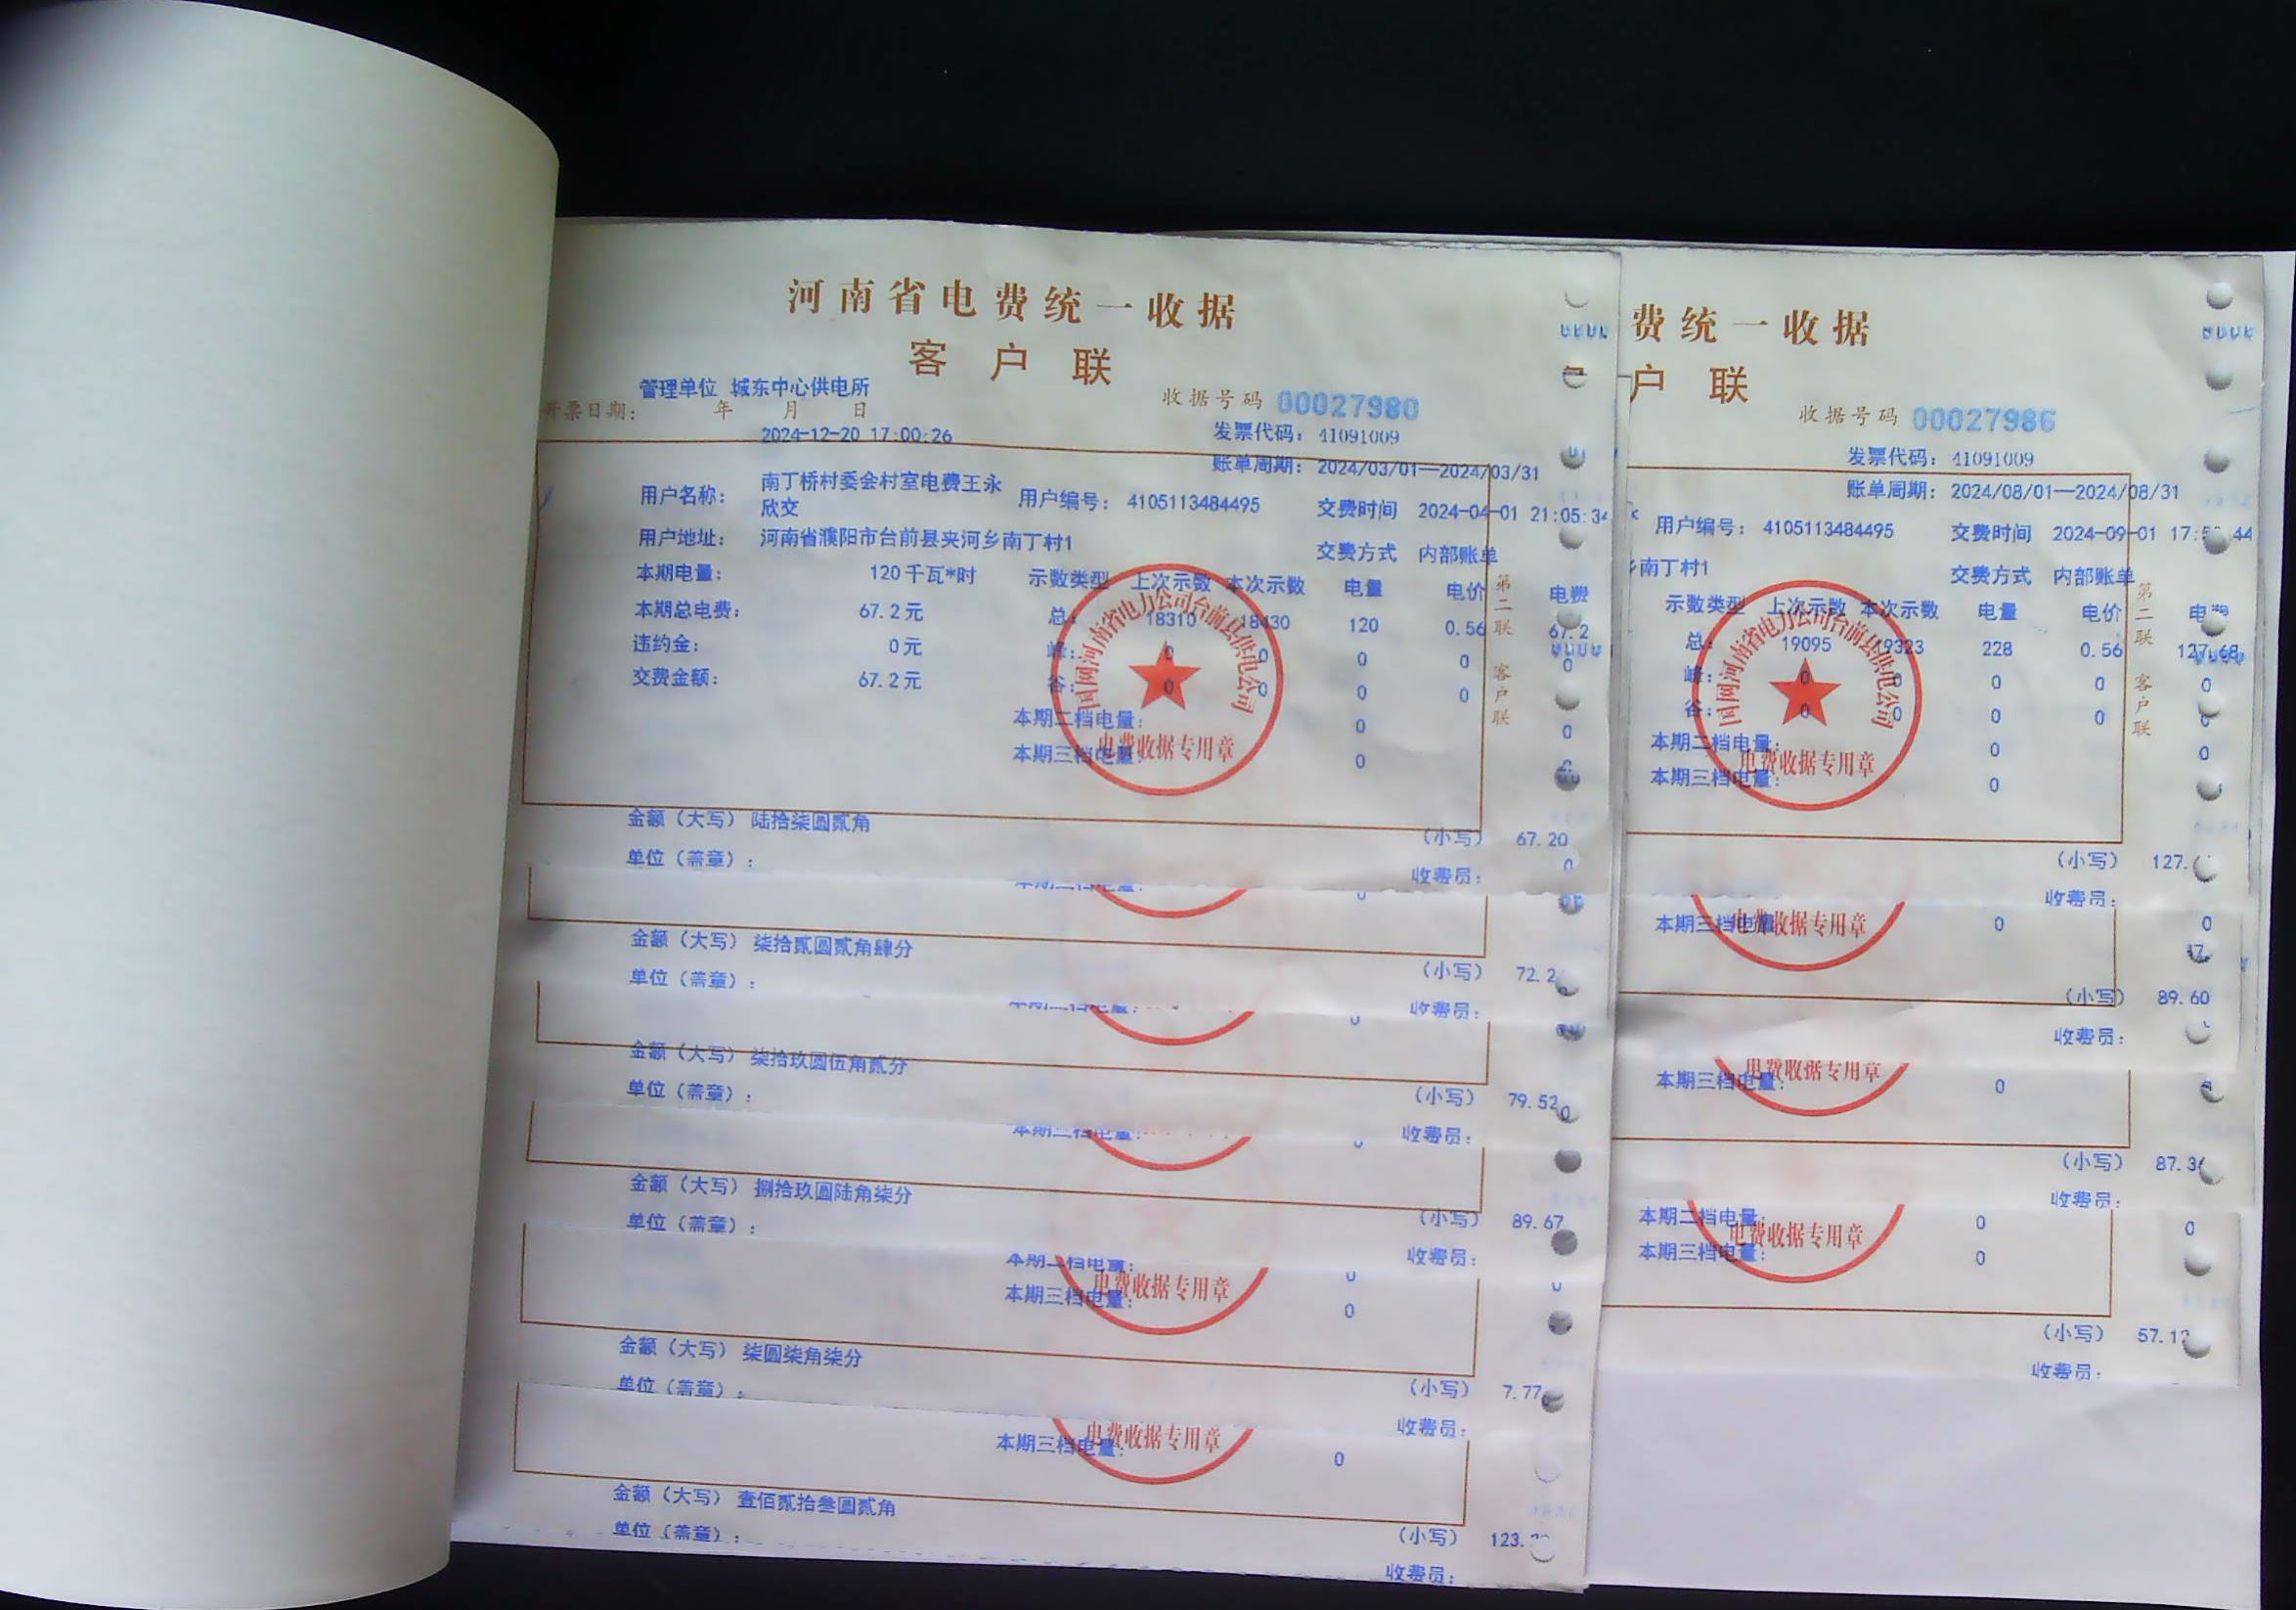 河南省电费统一收据
客户联
管理单位 城东中心供电所
开票日期： 年 月 日
收据号码 00027980
2024-12-20 17:00:26
发票代码： 41091009
账单周期： 2024/03/01—2024/03/31
用户名称： 南丁桥村委会村室电费王永欣交
用户编号： 4105113484495
交费时间 2024-04-01 21:05:34
用户地址： 河南省濮阳市台前县夹河乡南丁村1
交费方式 内部账单
本期电量： 120千瓦*时
示数类型 上次示数 本次示数 电量 电价 电费
本期总电费： 67.2元
总： 18310 18430 120 0.56 67.2
违约金： 0元
峰： 0 0 0 0 0
交费金额： 67.2元
谷： 0 0 0 0
本期二档电量： 0 0
本期三档电量： 0
国网河南省电力公司台前县供电公司
电费收据专用章
第二联 客户联
金额（大写） 陆拾柒圆贰角
（小写） 67.20
单位（盖章）：
收费员：
0
本期三档电量： 0
金额（大写） 柒拾贰圆贰角肆分
（小写） 72.2
单位（盖章）：
收费员：
本期三档电量： 0
金额（大写） 柒拾玖圆伍角贰分
（小写） 79.52
单位（盖章）：
收费员：
0
本期三档电量：
金额（大写） 捌拾玖圆陆角柒分
（小写） 89.67
单位（盖章）：
收费员：
本期二档电量： 0 0
本期三档电量： 0
电费收据专用章
金额（大写） 柒圆柒角柒分
（小写） 7.77
单位（盖章）：
收费员：
本期三档电量： 0
电费收据专用章
金额（大写） 壹佰贰拾叁圆贰角
（小写） 123.
单位（盖章）：
收费员：
费统一收据
户联
收据号码 00027986
发票代码： 41091009
账单周期： 2024/08/01—2024/08/31
用户编号： 4105113484495
交费时间 2024-09-01 17: 44
南丁村1
交费方式 内部账单
示数类型 上次示数 本次示数 电量 电价
总： 19095 19323 228 0.56 127.68
峰： 0 0 0 0 0
谷： 0 0 0 0
本期二档电量： 0 0
本期三档电量： 0
国网河南省电力公司台前县供电公司
电费收据专用章
第二联 客户联
（小写） 127.
收费员：
本期三档电量 0 0
电费收据专用章
（小写） 89.60
收费员：
本期三档电量： 0
电费收据专用章
（小写） 87.3
收费员：
本期二档电量： 0 0
本期三档电量： 0
电费收据专用章
（小写） 57.12
收费员：